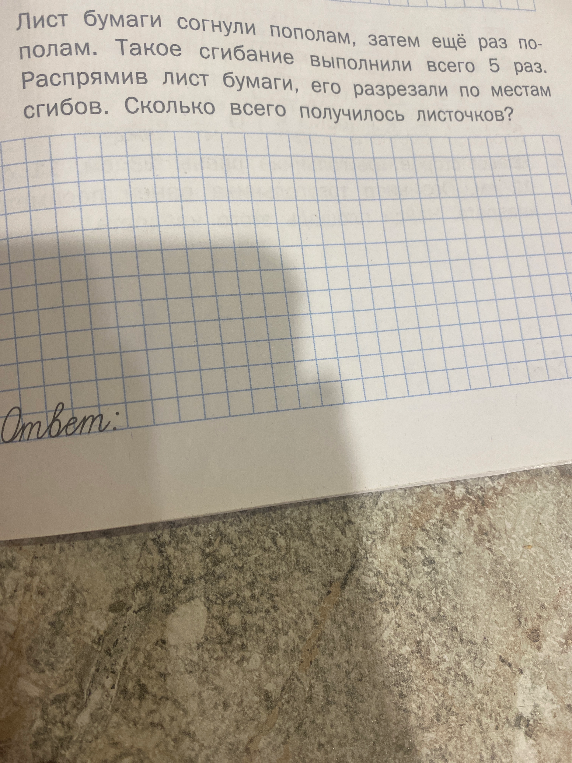 Лист бумаги согнули пополам, затем ещё раз по-
полам. Такое сгибание выполнили всего 5 раз.
Распрямив лист бумаги, его разрезали по местам
сгибов. Сколько всего получилось листочков?
Ответ: